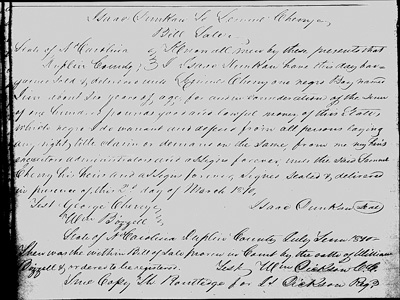 Isaac Dunkan To Lemuel Cherry
Bill Sale
State of N Carolina } Know all men by these presents that
Duplin County } I Isaac Dunkan have this day bar
gained sold & delivered unto Lemuel Cherry one negro Boy named
about Six years of age, for and in consideration of the sum
of one hund. pounds good and lawful money of this State,
which negro I do warrant and defend from all persons laying
any right, title claim or demand on the same, from me my heirs
executors administrators and assigns forever unto the said Lemuel
Cherry his heirs and assigns forever, signed sealed & delivered
in presence of this 2nd day of March 1810,
Test George Cherry
Wm Bizzell Isaac Dunkan Seal
State of N Carolina Duplin County July Term 1810
Then was the within Bill of Sale proven in Court by the oath of William
Bizzell & ordered to be registered. Test Wm Dickson C.C.
True Copy Th Routledge for Dickson Regr